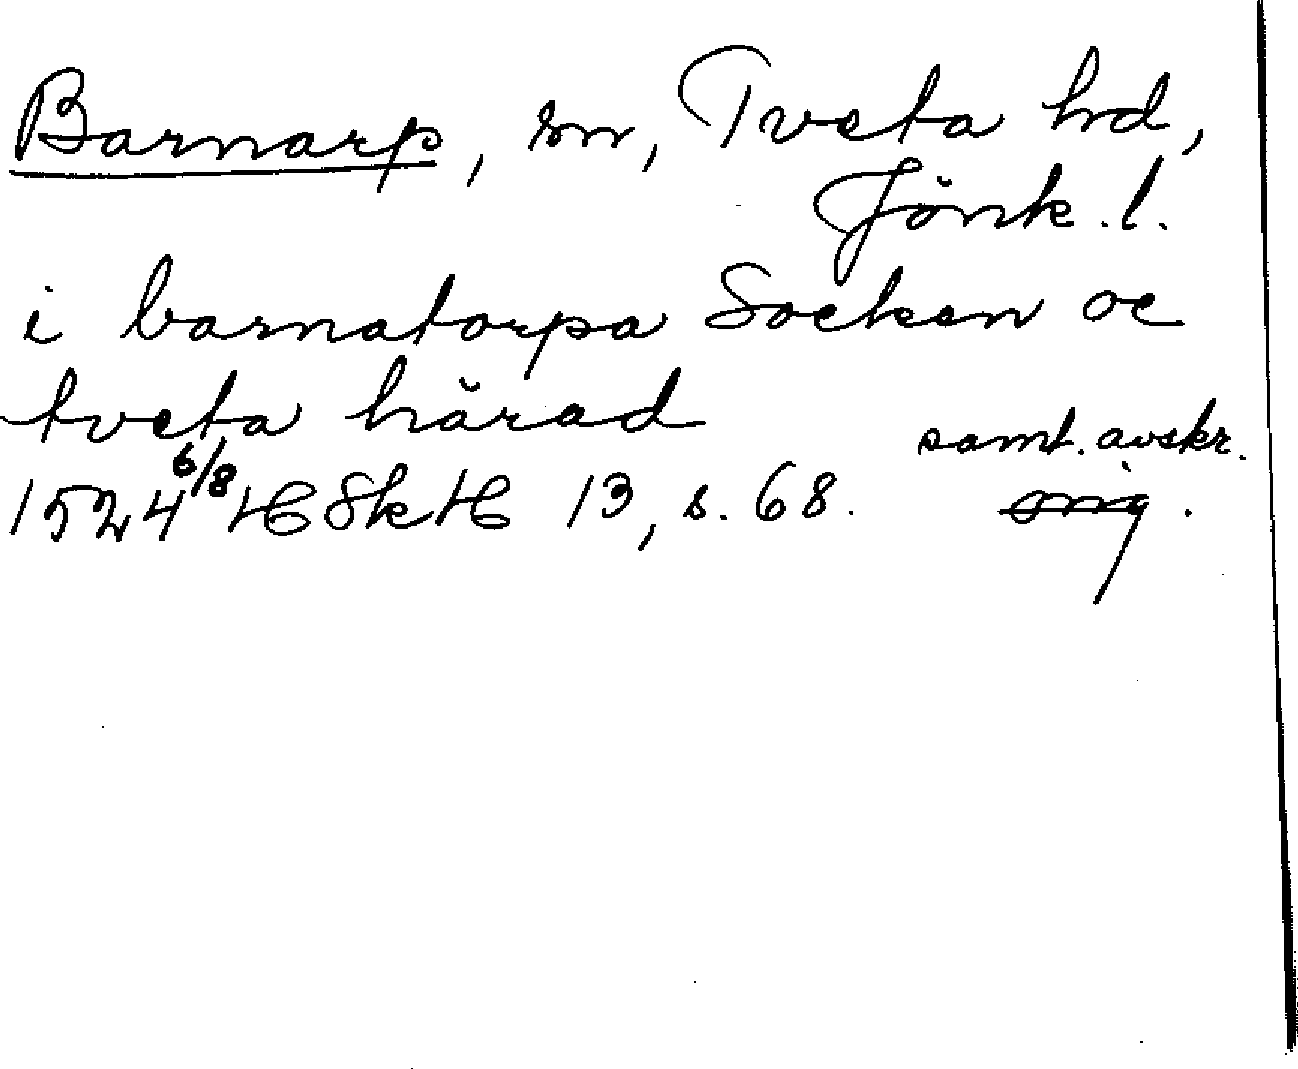 Barnarp, sn, Tveta hd,
Jönk. l.
i barnatorpa Socken oc
tveta härad
samt. avskr.
1524 6/8 HSkH 13, s. 68.